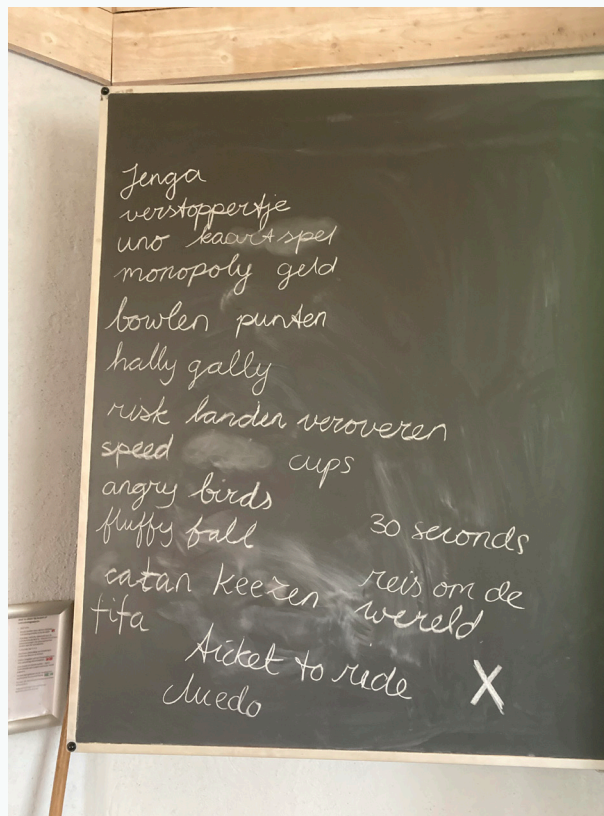 Jenga
verstoppertje
uno kaartspel
monopoly geld
bowlen punten
hally gally
risk landen veroveren
speed cups
angry birds
fluffy ball
30 seconds
catan keezen
reis om de
wereld
fifa
ticket to ride
X
cluedo